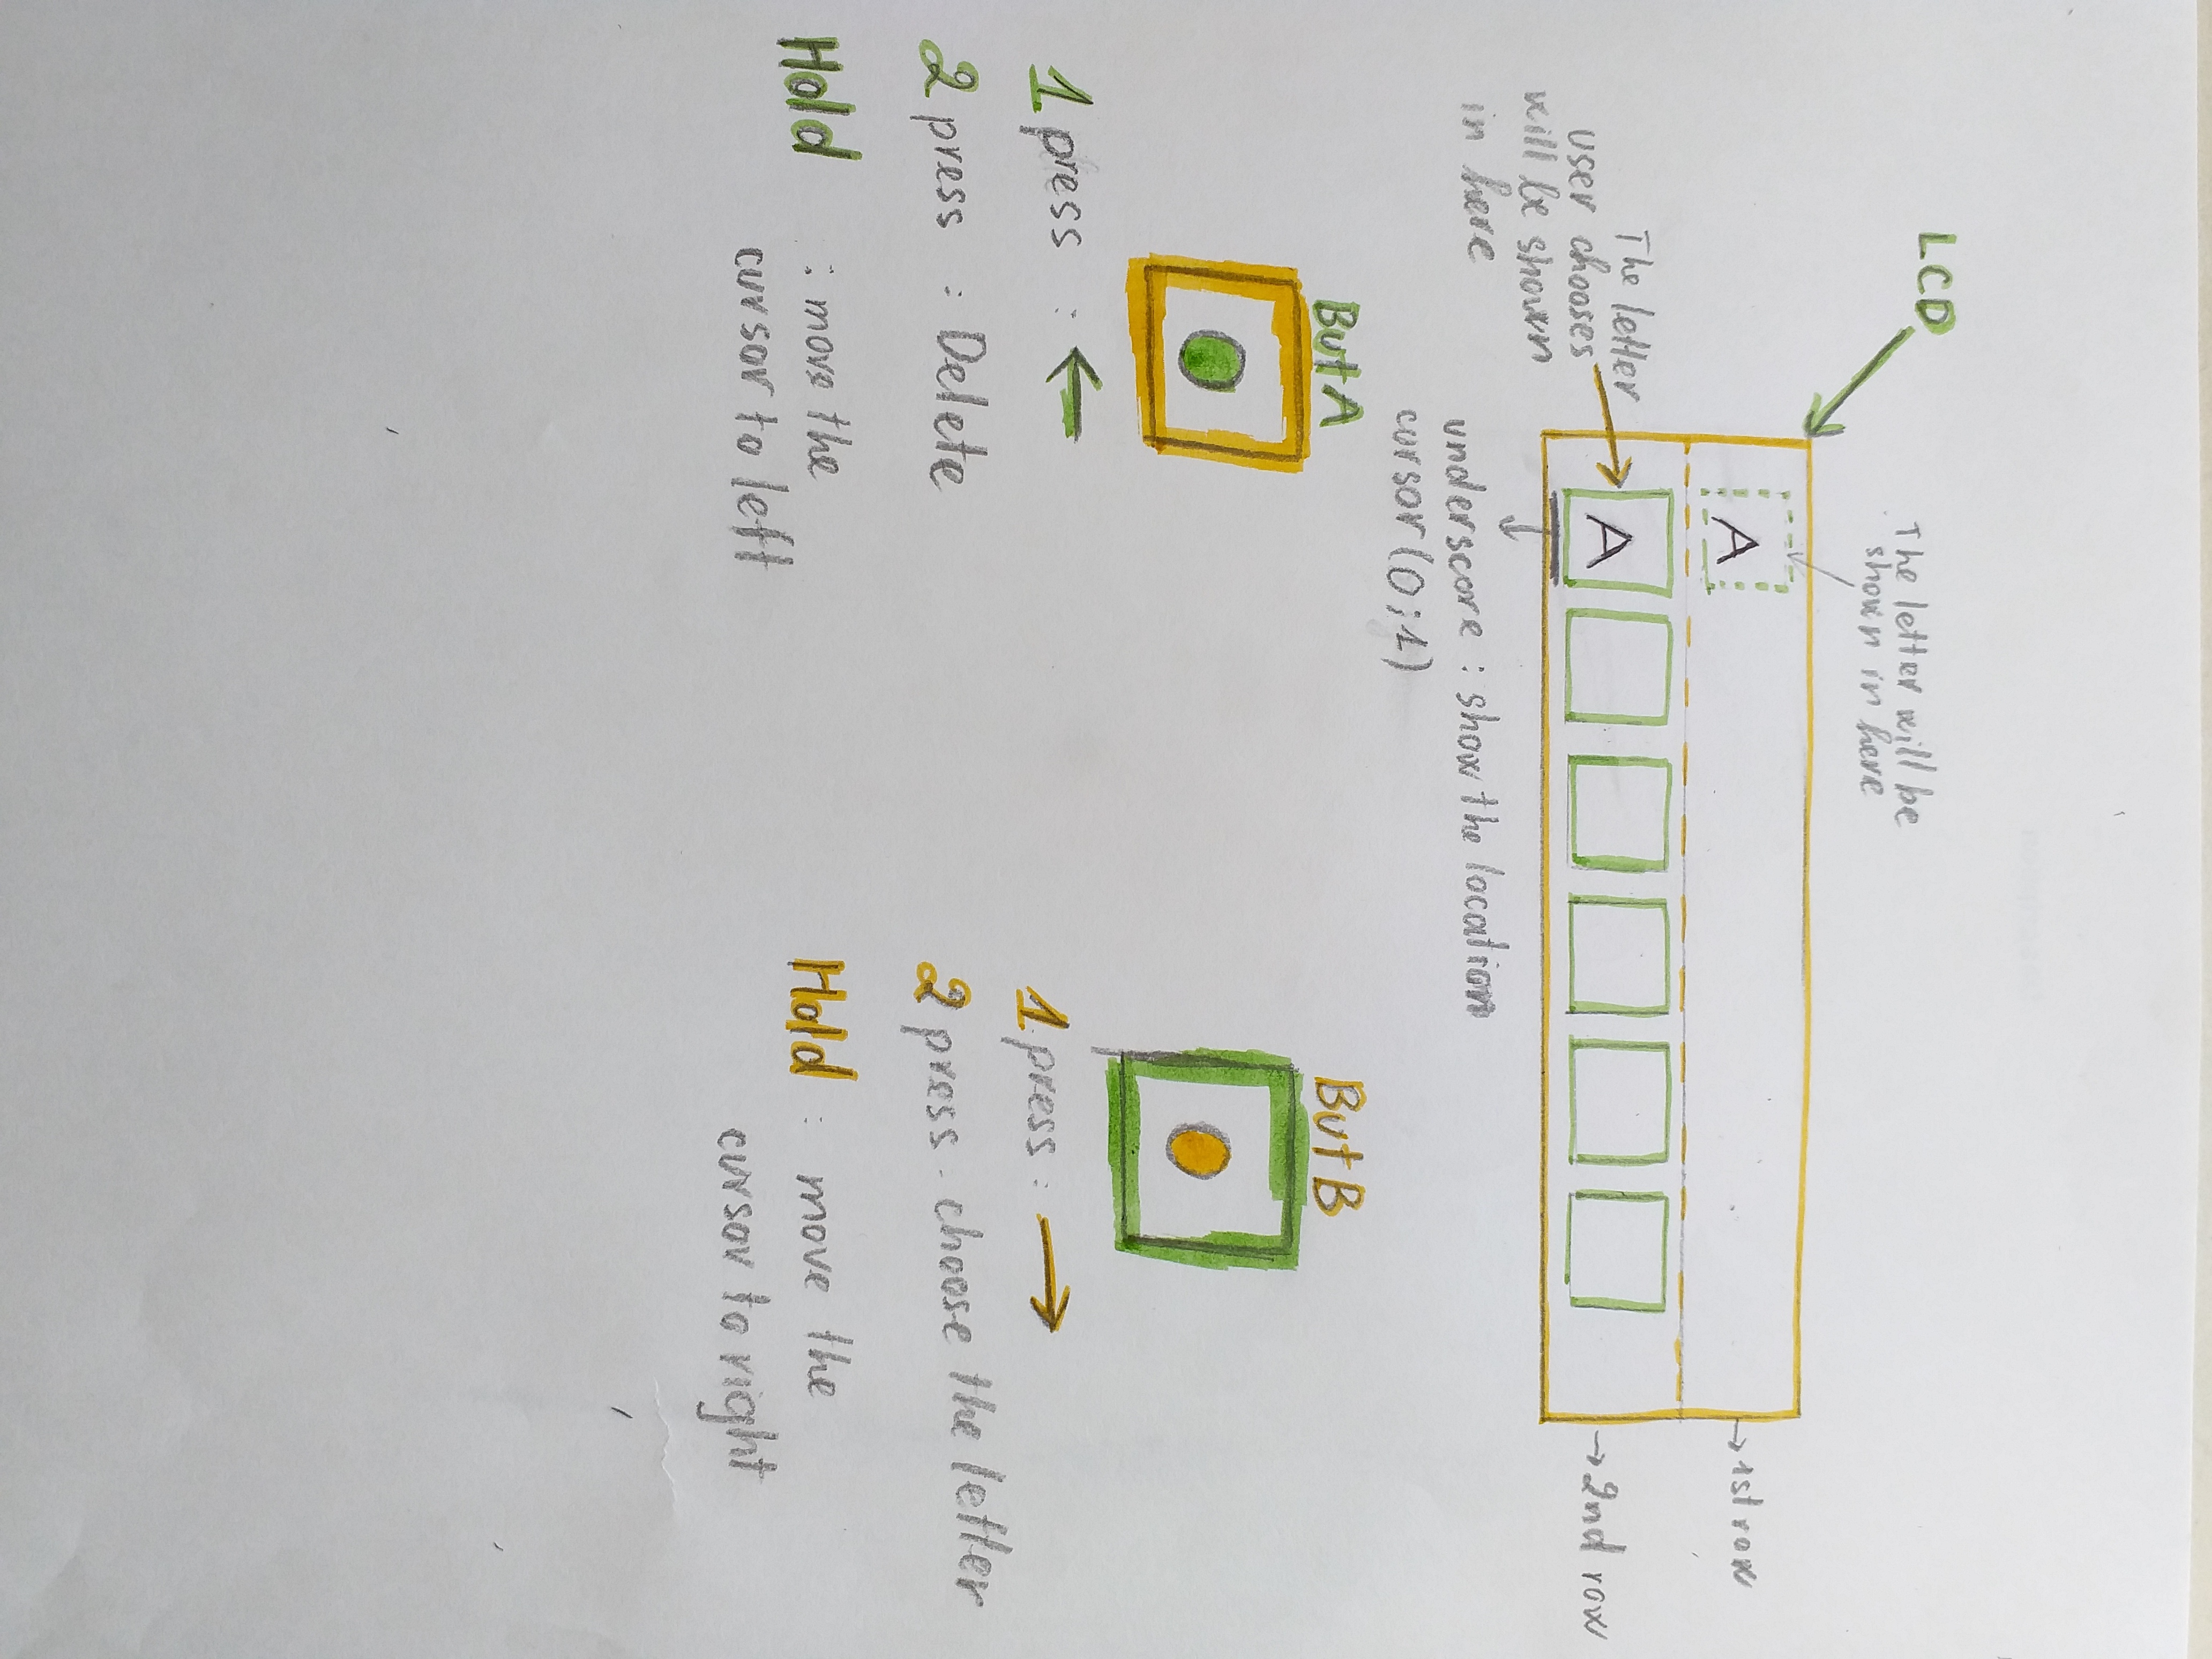 LCD
The letter will be
shown in here
The letter
user chooses
will be shown
in here
A
A
→ 1st row
→ 2nd row
underscore : show the location
cursor (0;1)
But A
1 press : ←
2 press : Delete
Hold : move the
cursor to left
But B
1 press : →
2 press - choose the letter
Hold : move the
cursor to right